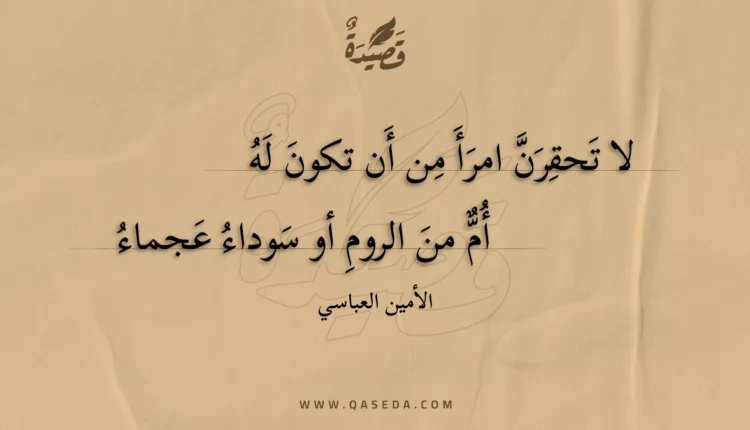 قَصِيدَةٌ
لا تَحقِرَنَّ امرَأَ مِن أَن تكونَ لَهُ
أُمٌّ منَ الرومِ أو سَوداءُ عَجماءُ
الأمين العباسي
WWW.QASEDA.COM